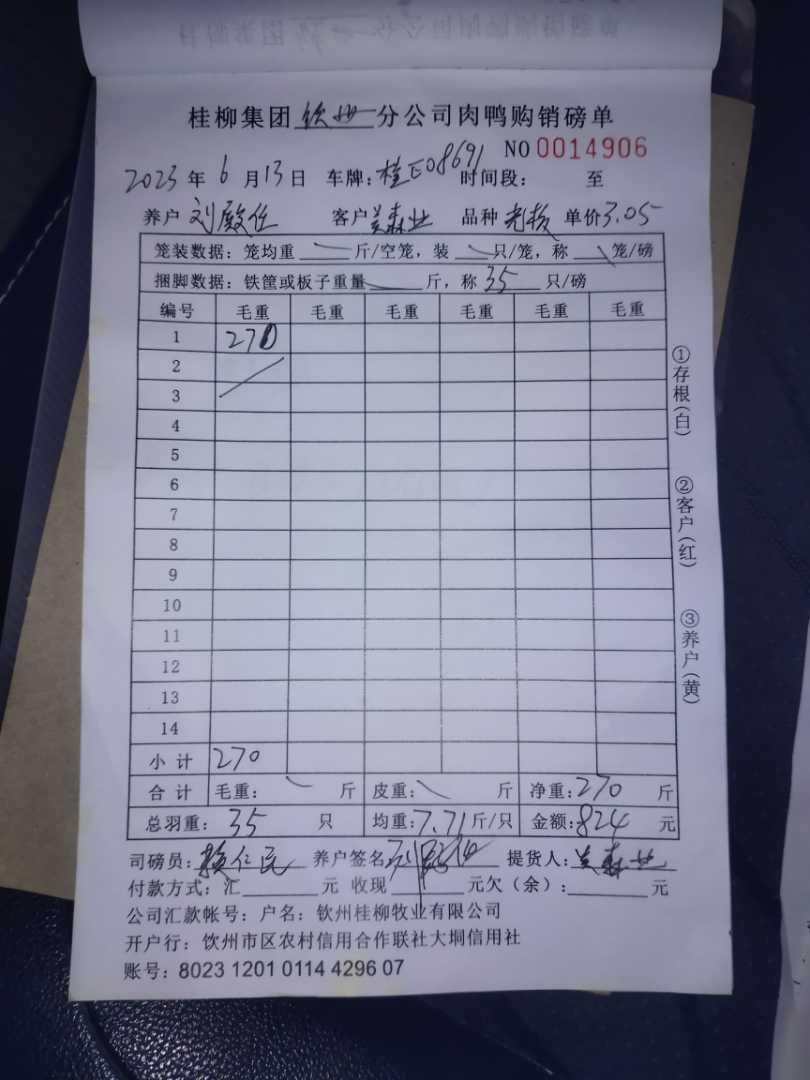 桂柳集团 钦州 分公司肉鸭购销磅单
NO 0014906
2023 年 6 月 13 日 车牌：桂E08691 时间段： 至
养户 刘殿任 客户 吴森业 品种 单价3.05
笼装数据：笼均重 斤/空笼，装 只/笼，称 笼/磅
捆脚数据：铁筐或板子重量 斤，称 35 只/磅
编号 毛重 毛重 毛重 毛重 毛重 毛重
1 270
2
3
4
5
6
7
8
9
10
11
12
13
14
小 计 270
合 计 毛重： 斤 皮重： 斤 净重：270 斤
总羽重： 35 只 均重：7.71斤/只 金额：824 元
司磅员： 赖仁民 养户签名 提货人：吴森业
付款方式：汇 元 收现 元欠（余）： 元
公司汇款帐号：户名：钦州桂柳牧业有限公司
开户行：饮州市区农村信用合作联社大垌信用社
账号：8023 1201 0114 4296 07
①存根(白)
②客户(红)
③养户(黄)